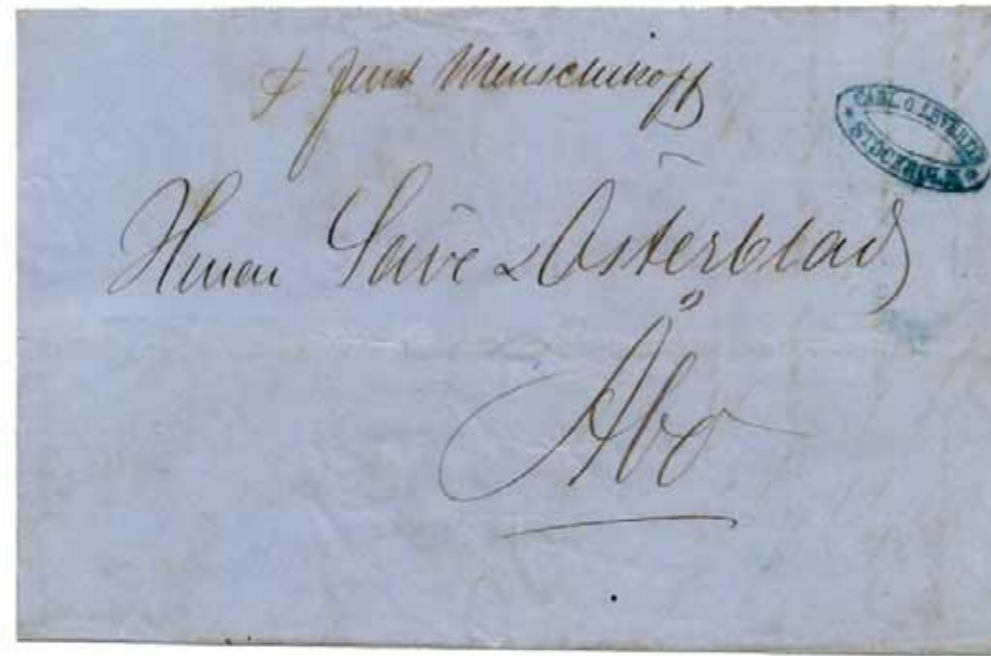 p Furst Menschikoff
CARL G. LEVERIN
STOCKHOLM
Herrar Säve & Österblad
Åbo